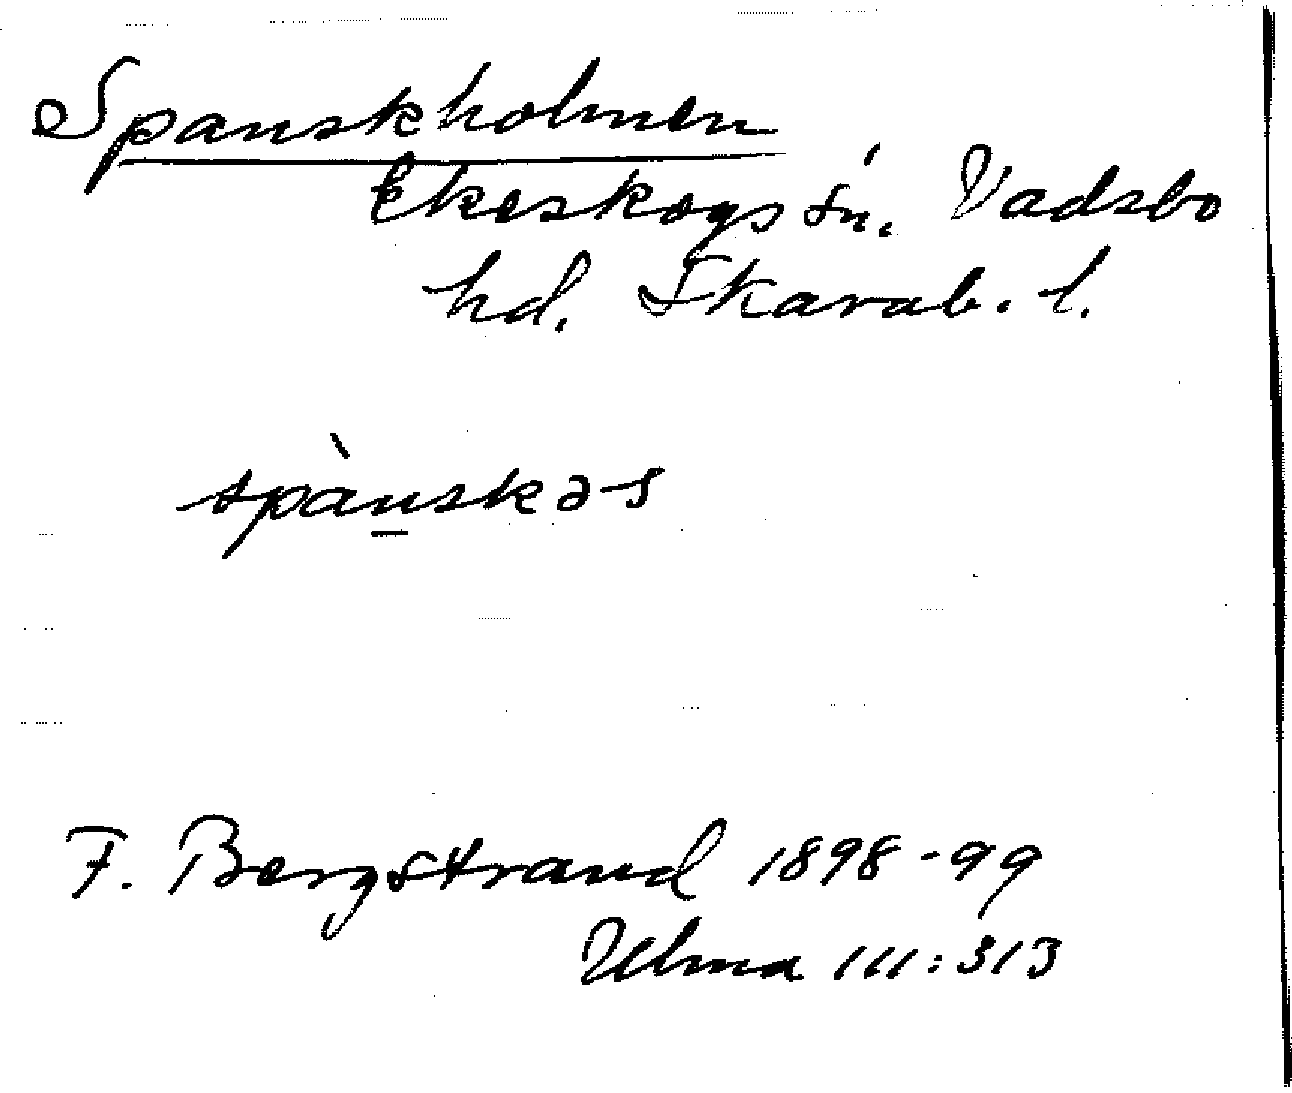 Spanskholmen
Ekeskogs sn. Vadsbo
hd. Skarab. l.
spànskə-s
F. Bergstrand 1898-99
Ulma 111:313